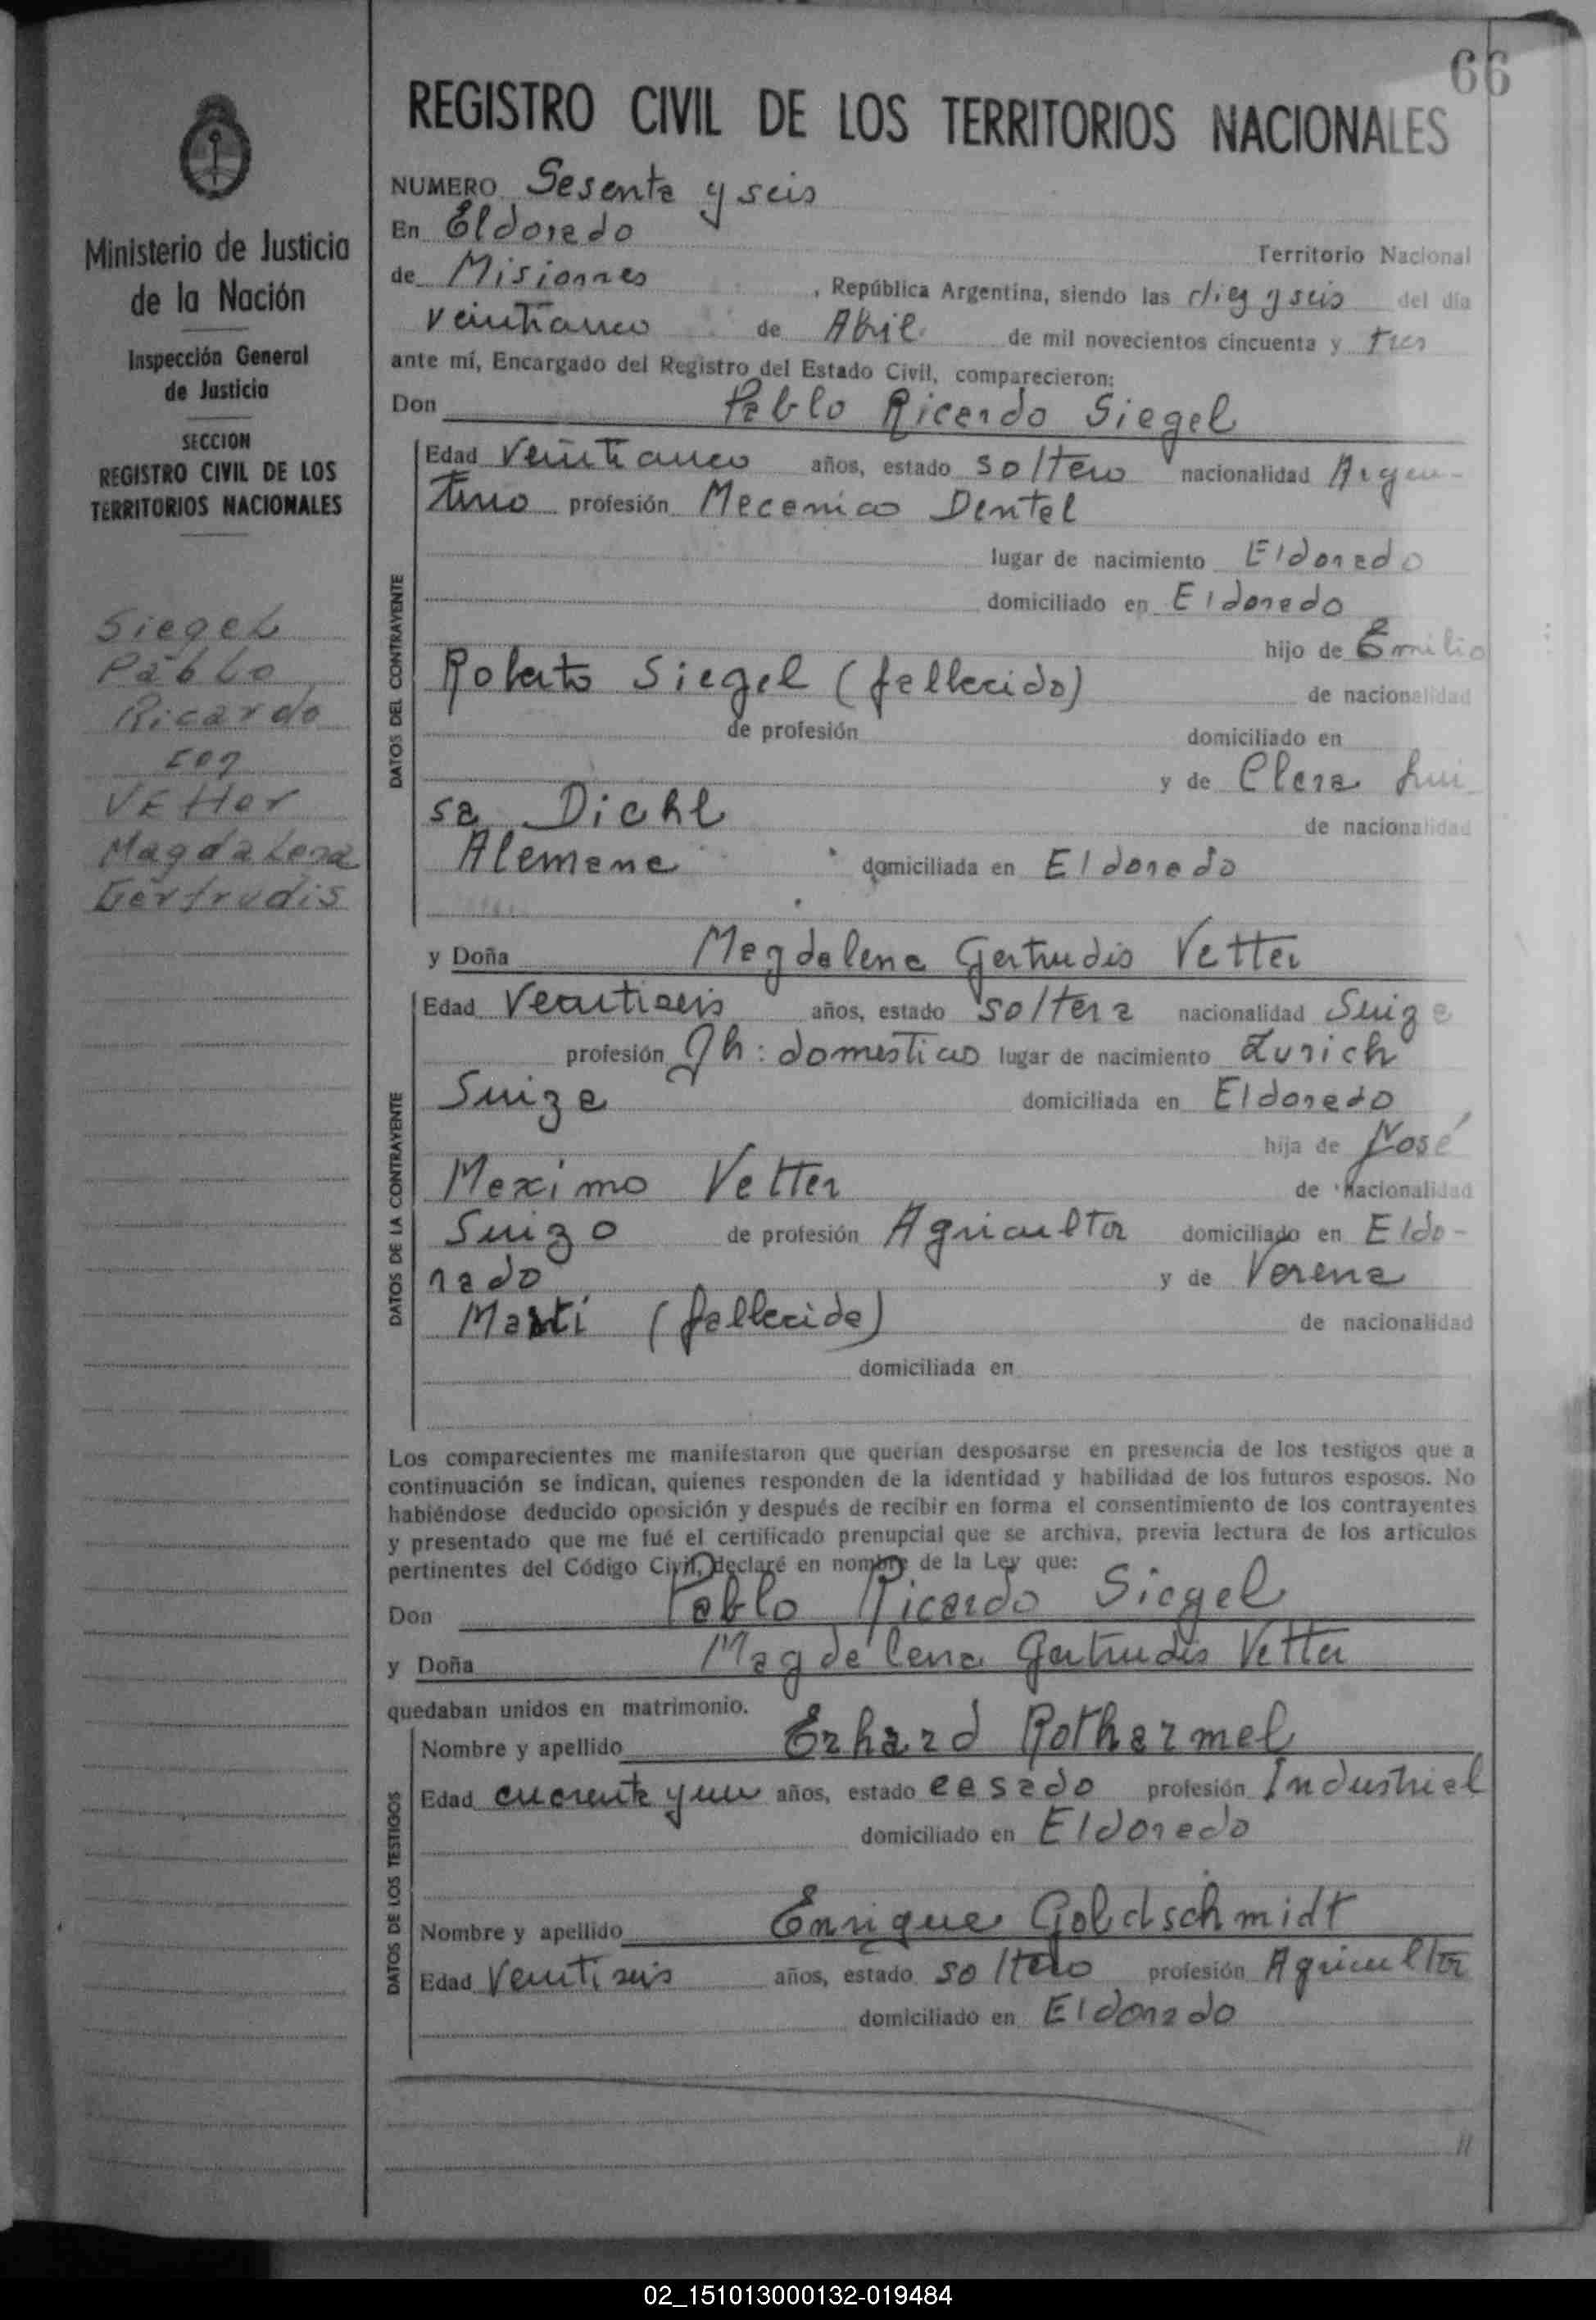 66
REGISTRO CIVIL DE LOS TERRITORIOS NACIONALES
Ministerio de Justicia
de la Nación
Inspección General
de Justicia
SECCION
REGISTRO CIVIL DE LOS
TERRITORIOS NACIONALES
Siegel
Pablo
Ricardo
con
Vetter
Magdalena
Gertrudis
NUMERO Sesenta y seis
En Eldorado
Territorio Nacional
de Misiones , República Argentina, siendo las diez y seis del día
veinticinco de Abril de mil novecientos cincuenta y tres
ante mí, Encargado del Registro del Estado Civil, comparecieron:
Don Pablo Ricardo Siegel
DATOS DEL CONTRAYENTE
Edad Veinticinco años, estado soltero nacionalidad Argen-
tino profesión Mecanico Dental
lugar de nacimiento Eldorado
domiciliado en Eldorado
hijo de Emilio
Roberto Siegel (fallecido) de nacionalidad
de profesión domiciliado en
y de Clara Lui
sa Diehl de nacionalidad
Alemana domiciliada en Eldorado
y Doña Magdalena Gertrudis Vetter
DATOS DE LA CONTRAYENTE
Edad Veintiseis años, estado soltera nacionalidad Suiza
profesión Qh: domesticos lugar de nacimiento Zurich
Suiza domiciliada en Eldorado
hija de José
Maximo Vetter de nacionalidad
Suizo de profesión Agricultor domiciliado en Eldo-
rado y de Verena
Marti (fallecida) de nacionalidad
domiciliada en
Los comparecientes me manifestaron que querían desposarse en presencia de los testigos que a
continuación se indican, quienes responden de la identidad y habilidad de los futuros esposos. No
habiéndose deducido oposición y después de recibir en forma el consentimiento de los contrayentes
y presentado que me fué el certificado prenupcial que se archiva, previa lectura de los artículos
pertinentes del Código Civil, declaré en nombre de la Ley que:
Don Pablo Ricardo Siegel
y Doña Magdalena Gertrudis Vetter
quedaban unidos en matrimonio.
DATOS DE LOS TESTIGOS
Nombre y apellido Erhard Rothermel
Edad cuarenta y un años, estado casado profesión Industrial
domiciliado en Eldorado
Nombre y apellido Enrique Goldschmidt
Edad Veintiseis años, estado soltero profesión Agricultor
domiciliado en Eldorado
//
02_151013000132-019484